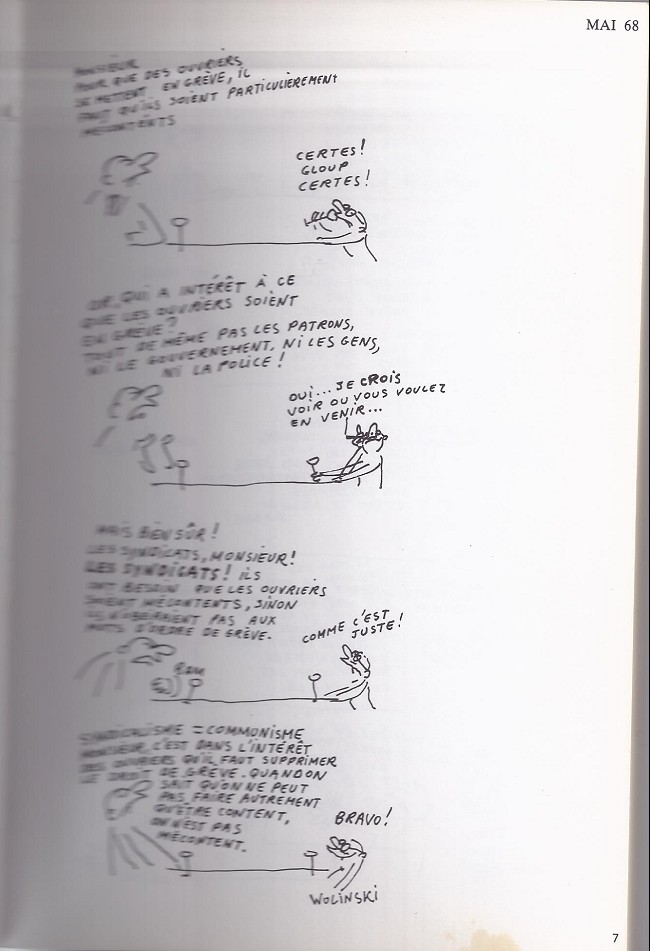 MAI 68
MONSIEUR
POUR QUE DES OUVRIERS
SE METTENT EN GRÈVE, IL
FAUT QU'ILS SOIENT PARTICULIÈREMENT
MÉCONTENTS
CERTES!
GLOUP
CERTES!
OR, QUI A INTÉRÊT À CE
QUE LES OUVRIERS SOIENT
EN GRÈVE?
TOUT DE MÊME PAS LES PATRONS,
NI LE GOUVERNEMENT, NI LES GENS,
NI LA POLICE!
OUI... JE CROIS
VOIR OU VOUS VOULEZ
EN VENIR...
MAIS BIEN SÛR!
LES SYNDICATS, MONSIEUR!
LES SYNDICATS! ILS
ONT BESOIN QUE LES OUVRIERS
SOIENT MÉCONTENTS, SINON
ILS N'OBÉIRAIENT PAS AUX
MOTS D'ORDRE DE GRÈVE.
COMME C'EST
JUSTE!
SYNDICALISME = COMMONISME
MONSIEUR, C'EST DANS L'INTÉRÊT
DES OUVRIERS QU'IL FAUT SUPPRIMER
LE DROIT DE GRÈVE. QUAND ON
SAIT QU'ON NE PEUT
PAS FAIRE AUTREMENT
QU'ÊTRE CONTENT,
ON N'EST PAS
MÉCONTENT.
BRAVO!
WOLINSKI
7